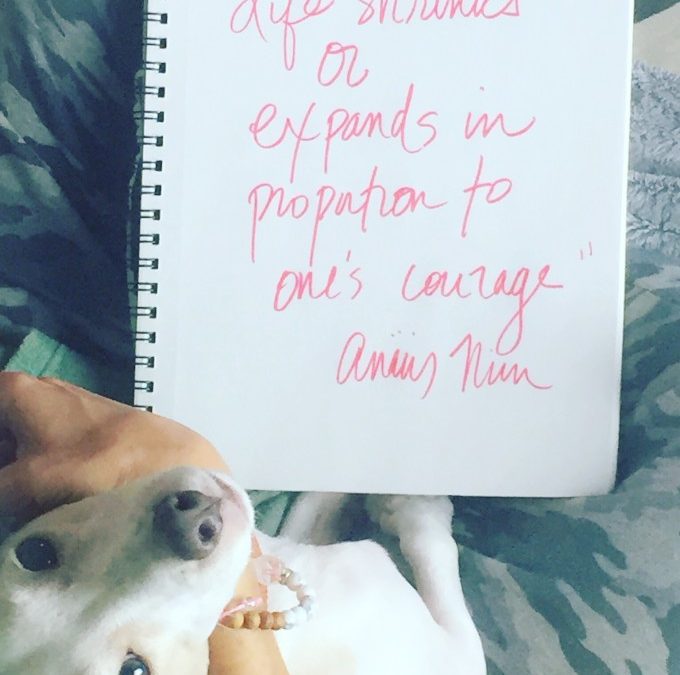 Life shrinks
or
expands in
proportion to
one's courage"
Anaïs Nin